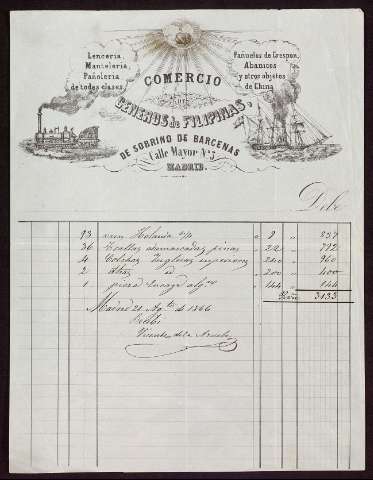 Lencería,
Mantelería,
Pañolería
de todas clases.
Pañuelos de Crespon,
Abanicos
y otros objetos
de China
COMERCIO
DE
GENEROS de FILIPINAS,
DE SOBRINO DE BARCENAS
Calle Mayor Nº 5
MADRID.
Debe
93 Holanda " 9 " 837
36 Toallas adamascadas finas " 22 " 792
4 Colchas Inglesas superiores " 240 " 960
2 otras id " 200 " 400
1 pieza " 144 " 144
3133
Madrid 21 Agto de 1866
Recibi
Vicente de la